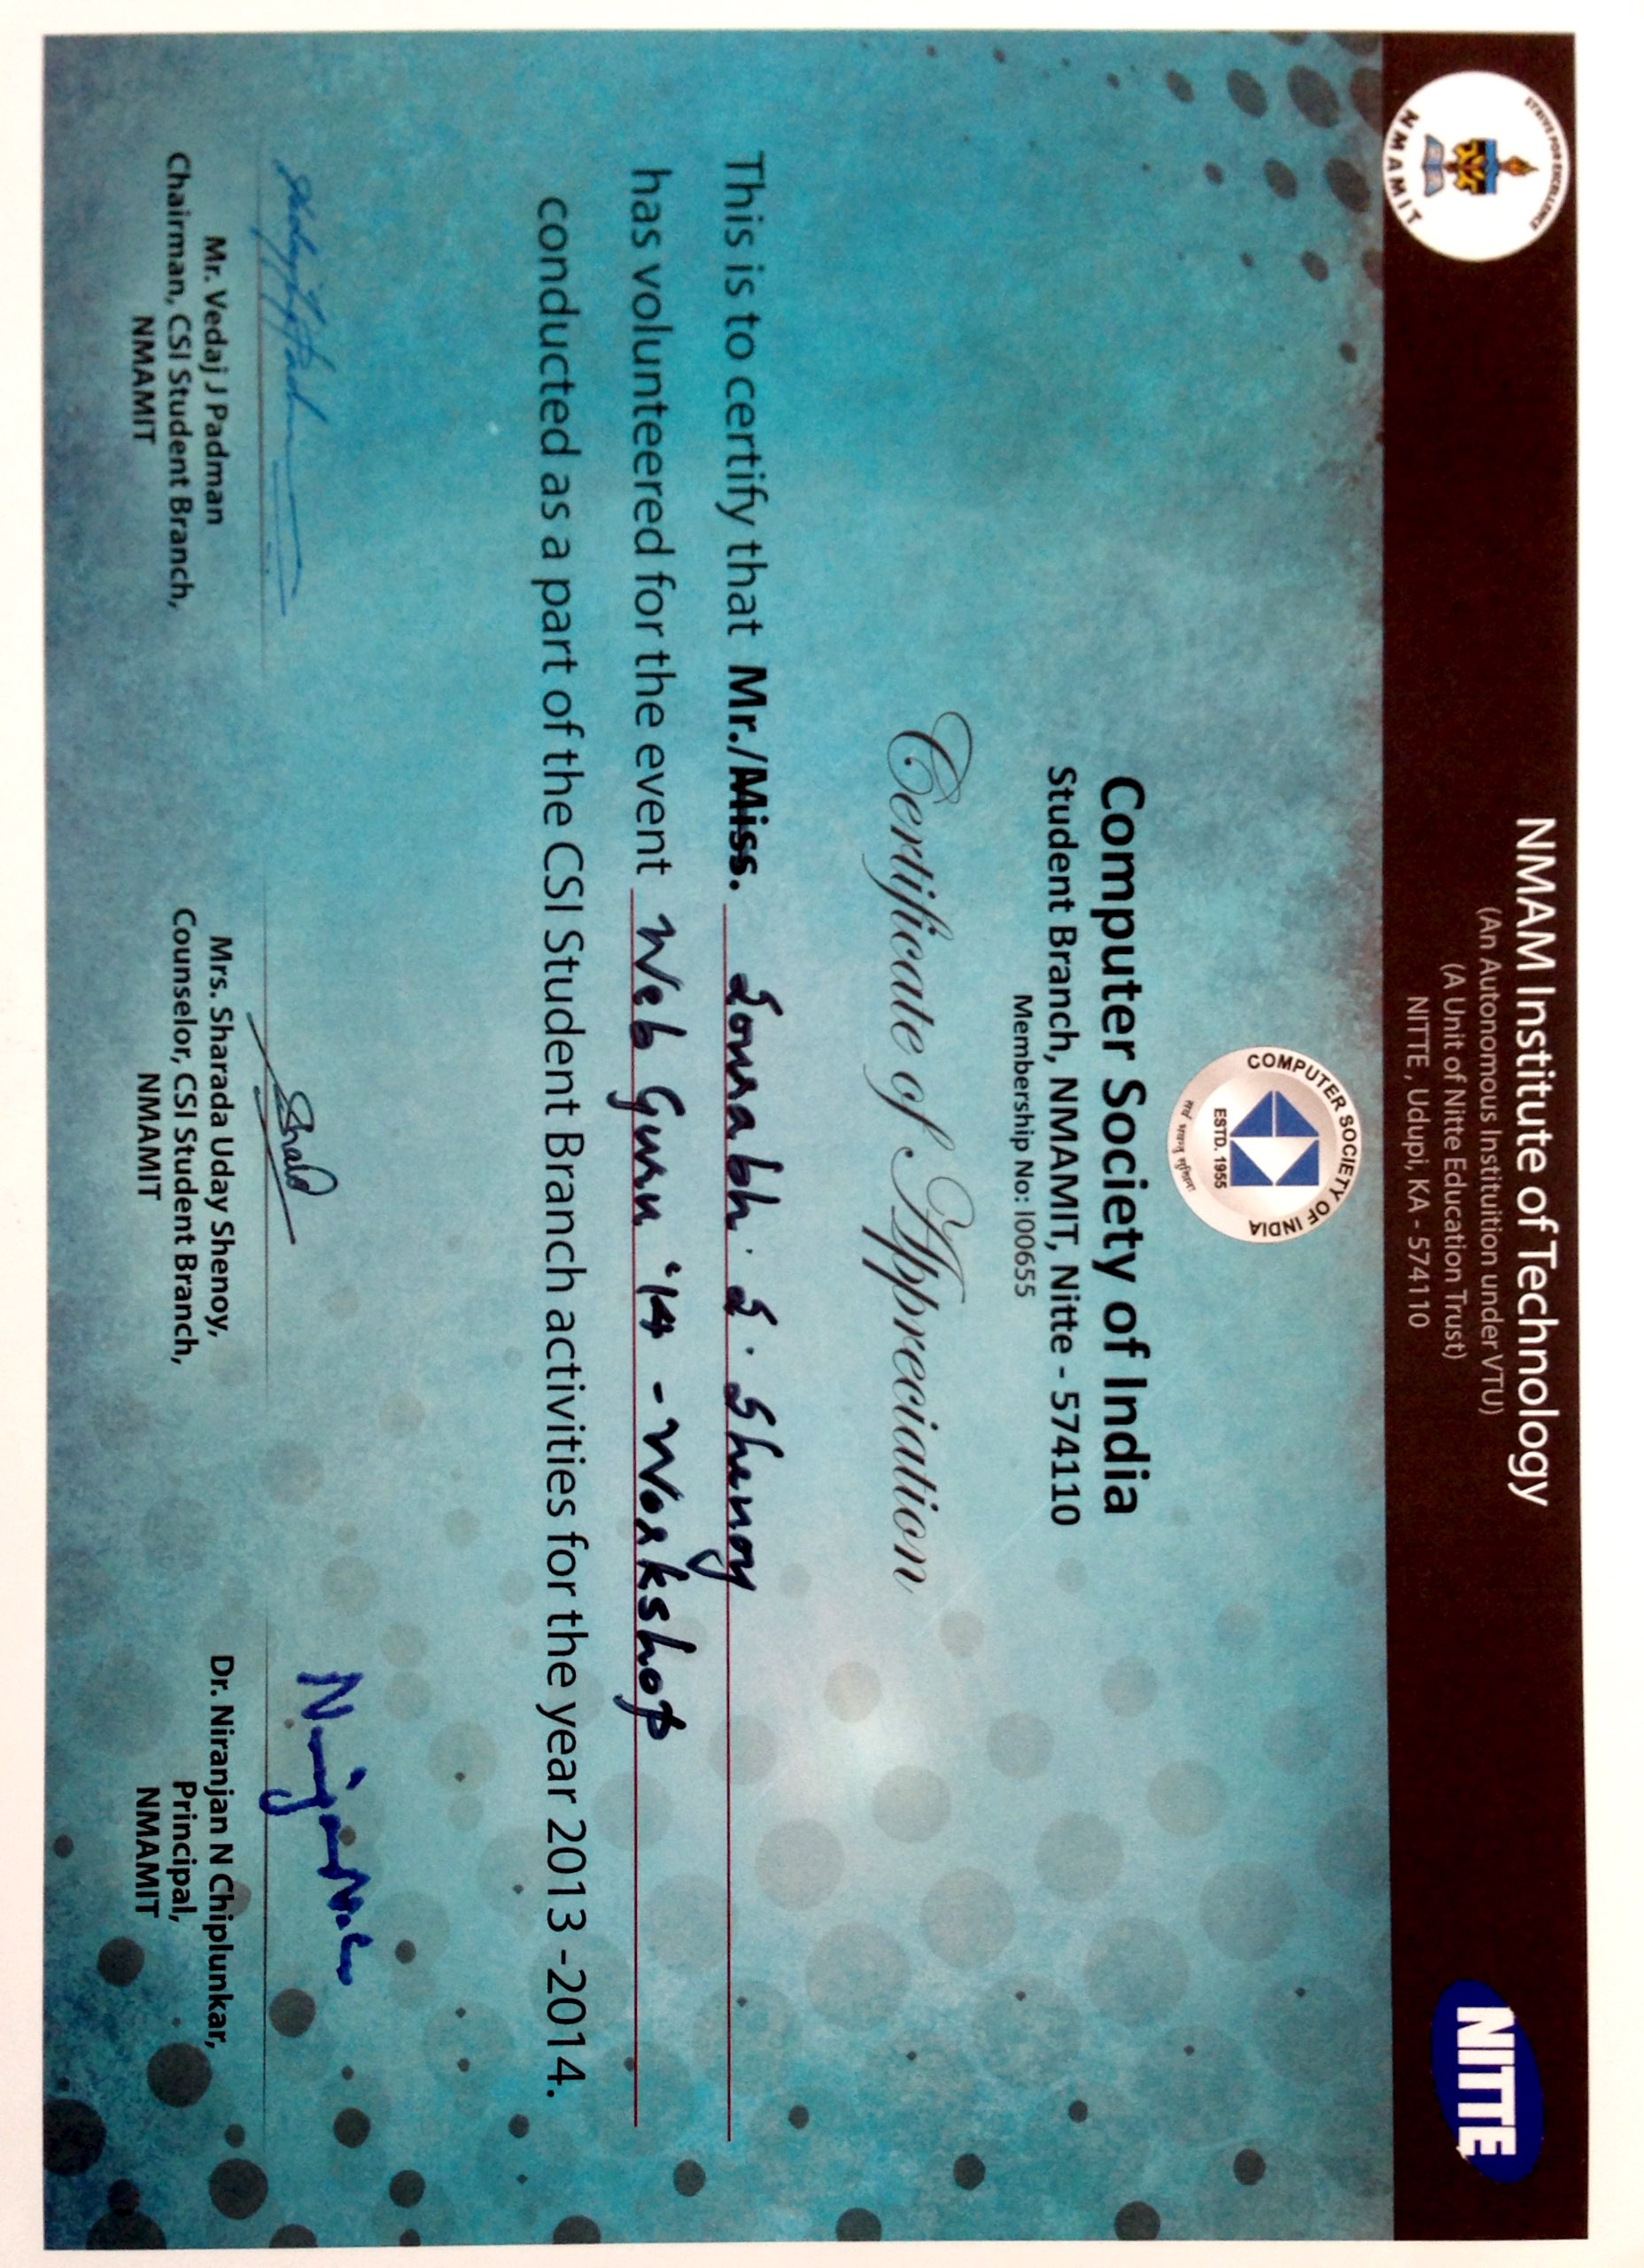 STRIVE FOR EXCELLENCE
NMAMIT
NMAM Institute of Technology
(An Autonomous Instituition under VTU)
(A Unit of Nitte Education Trust)
NITTE , Udupi, KA - 574110
NITTE
COMPUTER SOCIETY OF INDIA
ESTD. 1955
Computer Society of India
Student Branch, NMAMIT, Nitte - 574110
Membership No: I00655
Certificate of Appreciation
This is to certify that Mr./Miss. Sourabh . S . Shenoy
has volunteered for the event Web Guru '14 - Workshop
conducted as a part of the CSI Student Branch activities for the year 2013 -2014.
Mr. Vedaj J Padman
Chairman, CSI Student Branch,
NMAMIT
Mrs. Sharada Uday Shenoy,
Counselor, CSI Student Branch,
NMAMIT
Dr. Niranjan N Chiplunkar,
Principal,
NMAMIT